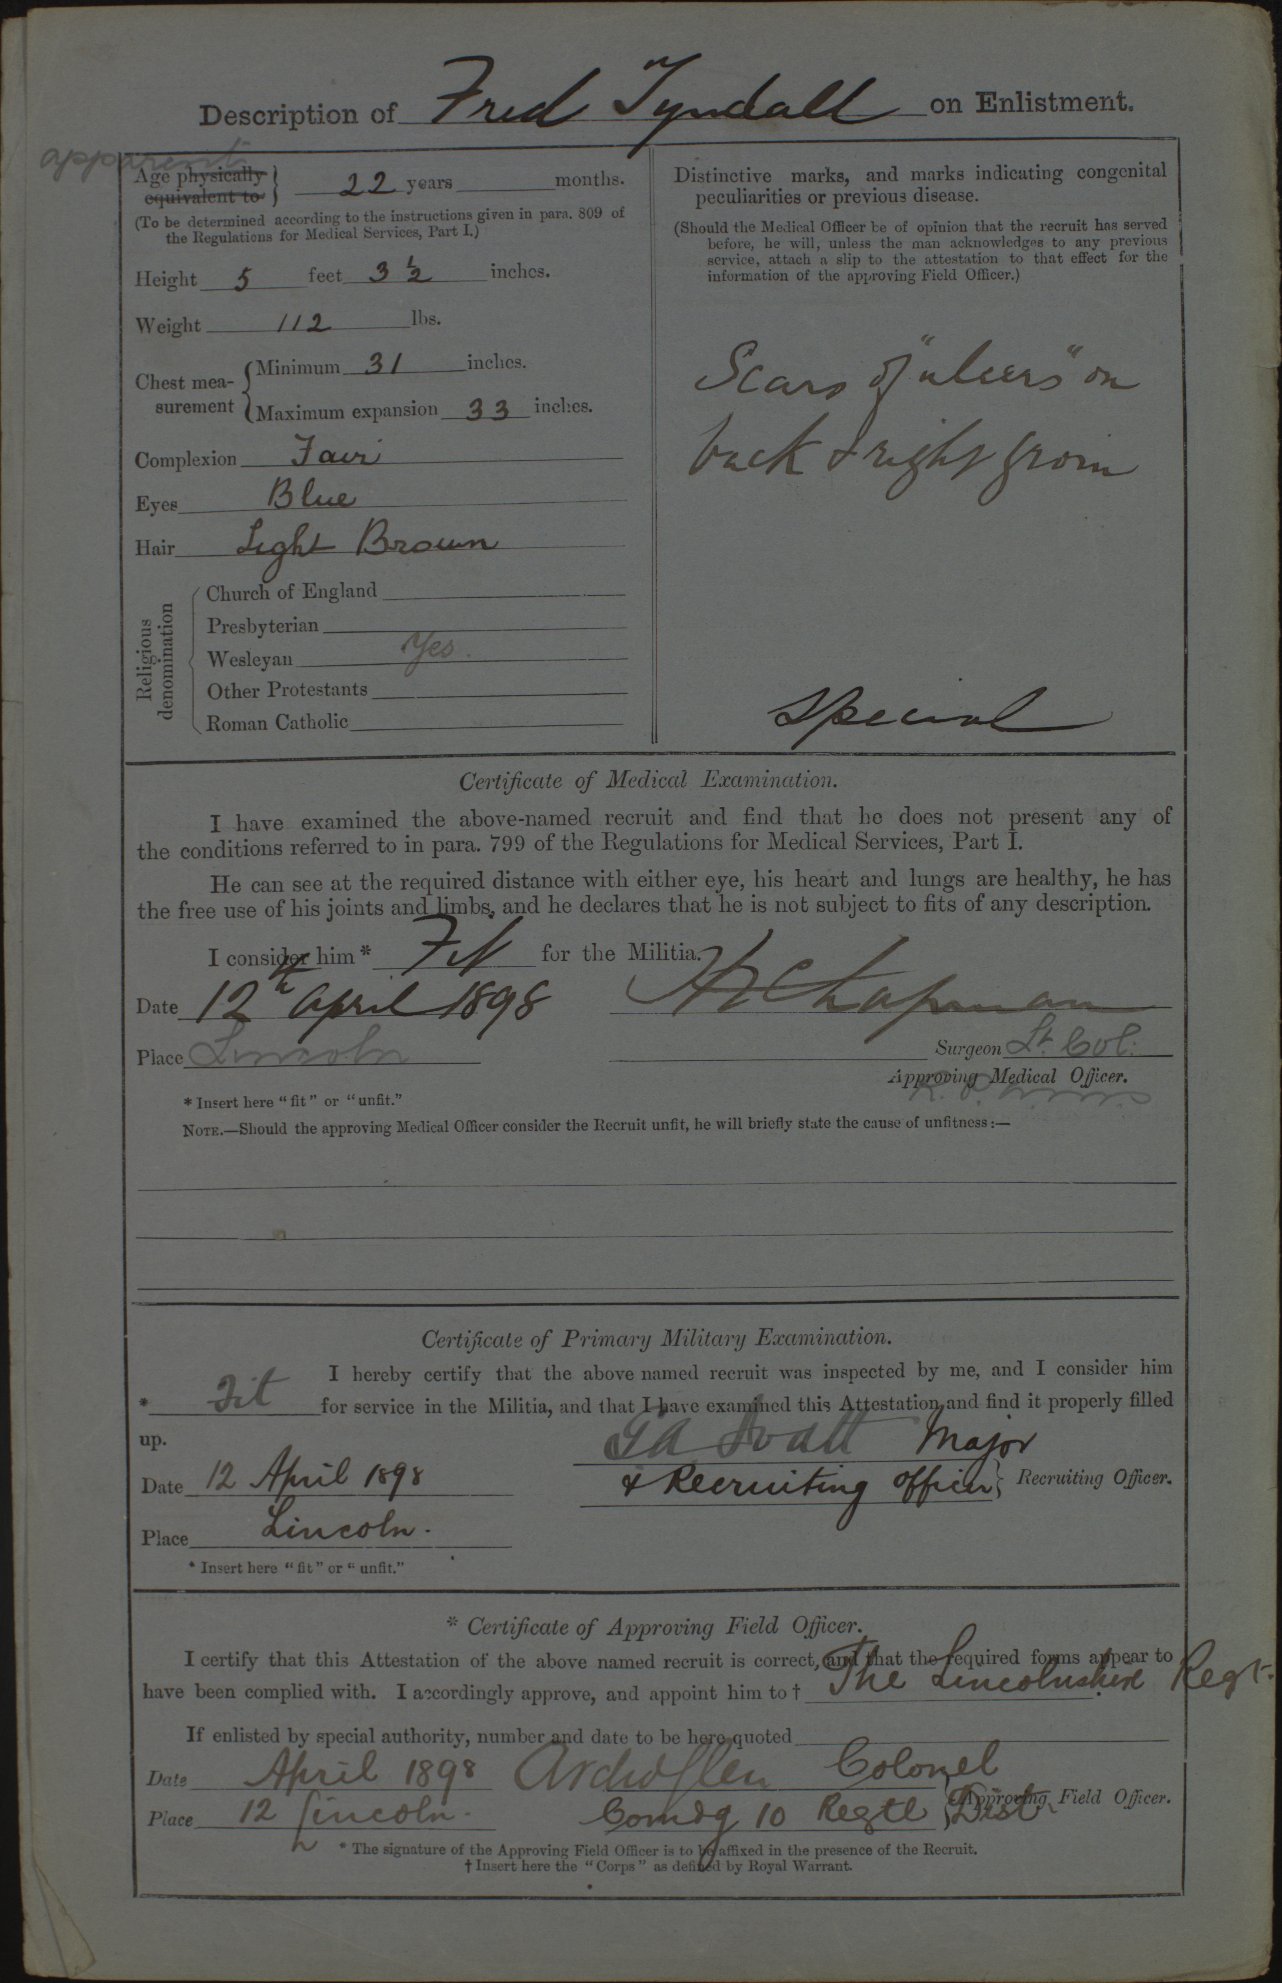 Description of Fred Tyndall on Enlistment.
apparent
Age physically equivalent to } 22 years months.
(To be determined according to the instructions given in para. 809 of
the Regulations for Medical Services, Part I.)
Height 5 feet 3 ½ inches.
Weight 112 lbs.
Chest mea-surement { Minimum 31 inches.
Maximum expansion 33 inches.
Complexion Fair
Eyes Blue
Hair Light Brown
Religious denomination
Church of England
Presbyterian
Wesleyan Yes.
Other Protestants
Roman Catholic
Distinctive marks, and marks indicating congenital
peculiarities or previous disease.
(Should the Medical Officer be of opinion that the recruit has served
before, he will, unless the man acknowledges to any previous
service, attach a slip to the attestation to that effect for the
information of the approving Field Officer.)
Scars of "ulcers" on
back & right groin
Special
Certificate of Medical Examination.
I have examined the above-named recruit and find that he does not present any of
the conditions referred to in para. 799 of the Regulations for Medical Services, Part I.
He can see at the required distance with either eye, his heart and lungs are healthy, he has
the free use of his joints and limbs, and he declares that he is not subject to fits of any description.
I consider him * Fit for the Militia.
Date 12th April 1898 Chapman
Place Lincoln Surgeon Lt. Col:
Approving Medical Officer.
* Insert here "fit" or "unfit."
NOTE.—Should the approving Medical Officer consider the Recruit unfit, he will briefly state the cause of unfitness:—
Certificate of Primary Military Examination.
I hereby certify that the above named recruit was inspected by me, and I consider him
* Fit for service in the Militia, and that I have examined this Attestation and find it properly filled
up.
Major
Date 12 April 1898 & Recruiting Officer } Recruiting Officer.
Place Lincoln.
* Insert here "fit" or "unfit."
* Certificate of Approving Field Officer.
I certify that this Attestation of the above named recruit is correct, and that the required forms appear to
have been complied with. I accordingly approve, and appoint him to † The Lincolnshire Regt.
If enlisted by special authority, number and date to be here quoted
Date April 1898 Colonel
Place 12 Lincoln. Comdg 10 Regtl Dist. } Approving Field Officer.
* The signature of the Approving Field Officer is to be affixed in the presence of the Recruit.
† Insert here the "Corps" as defined by Royal Warrant.